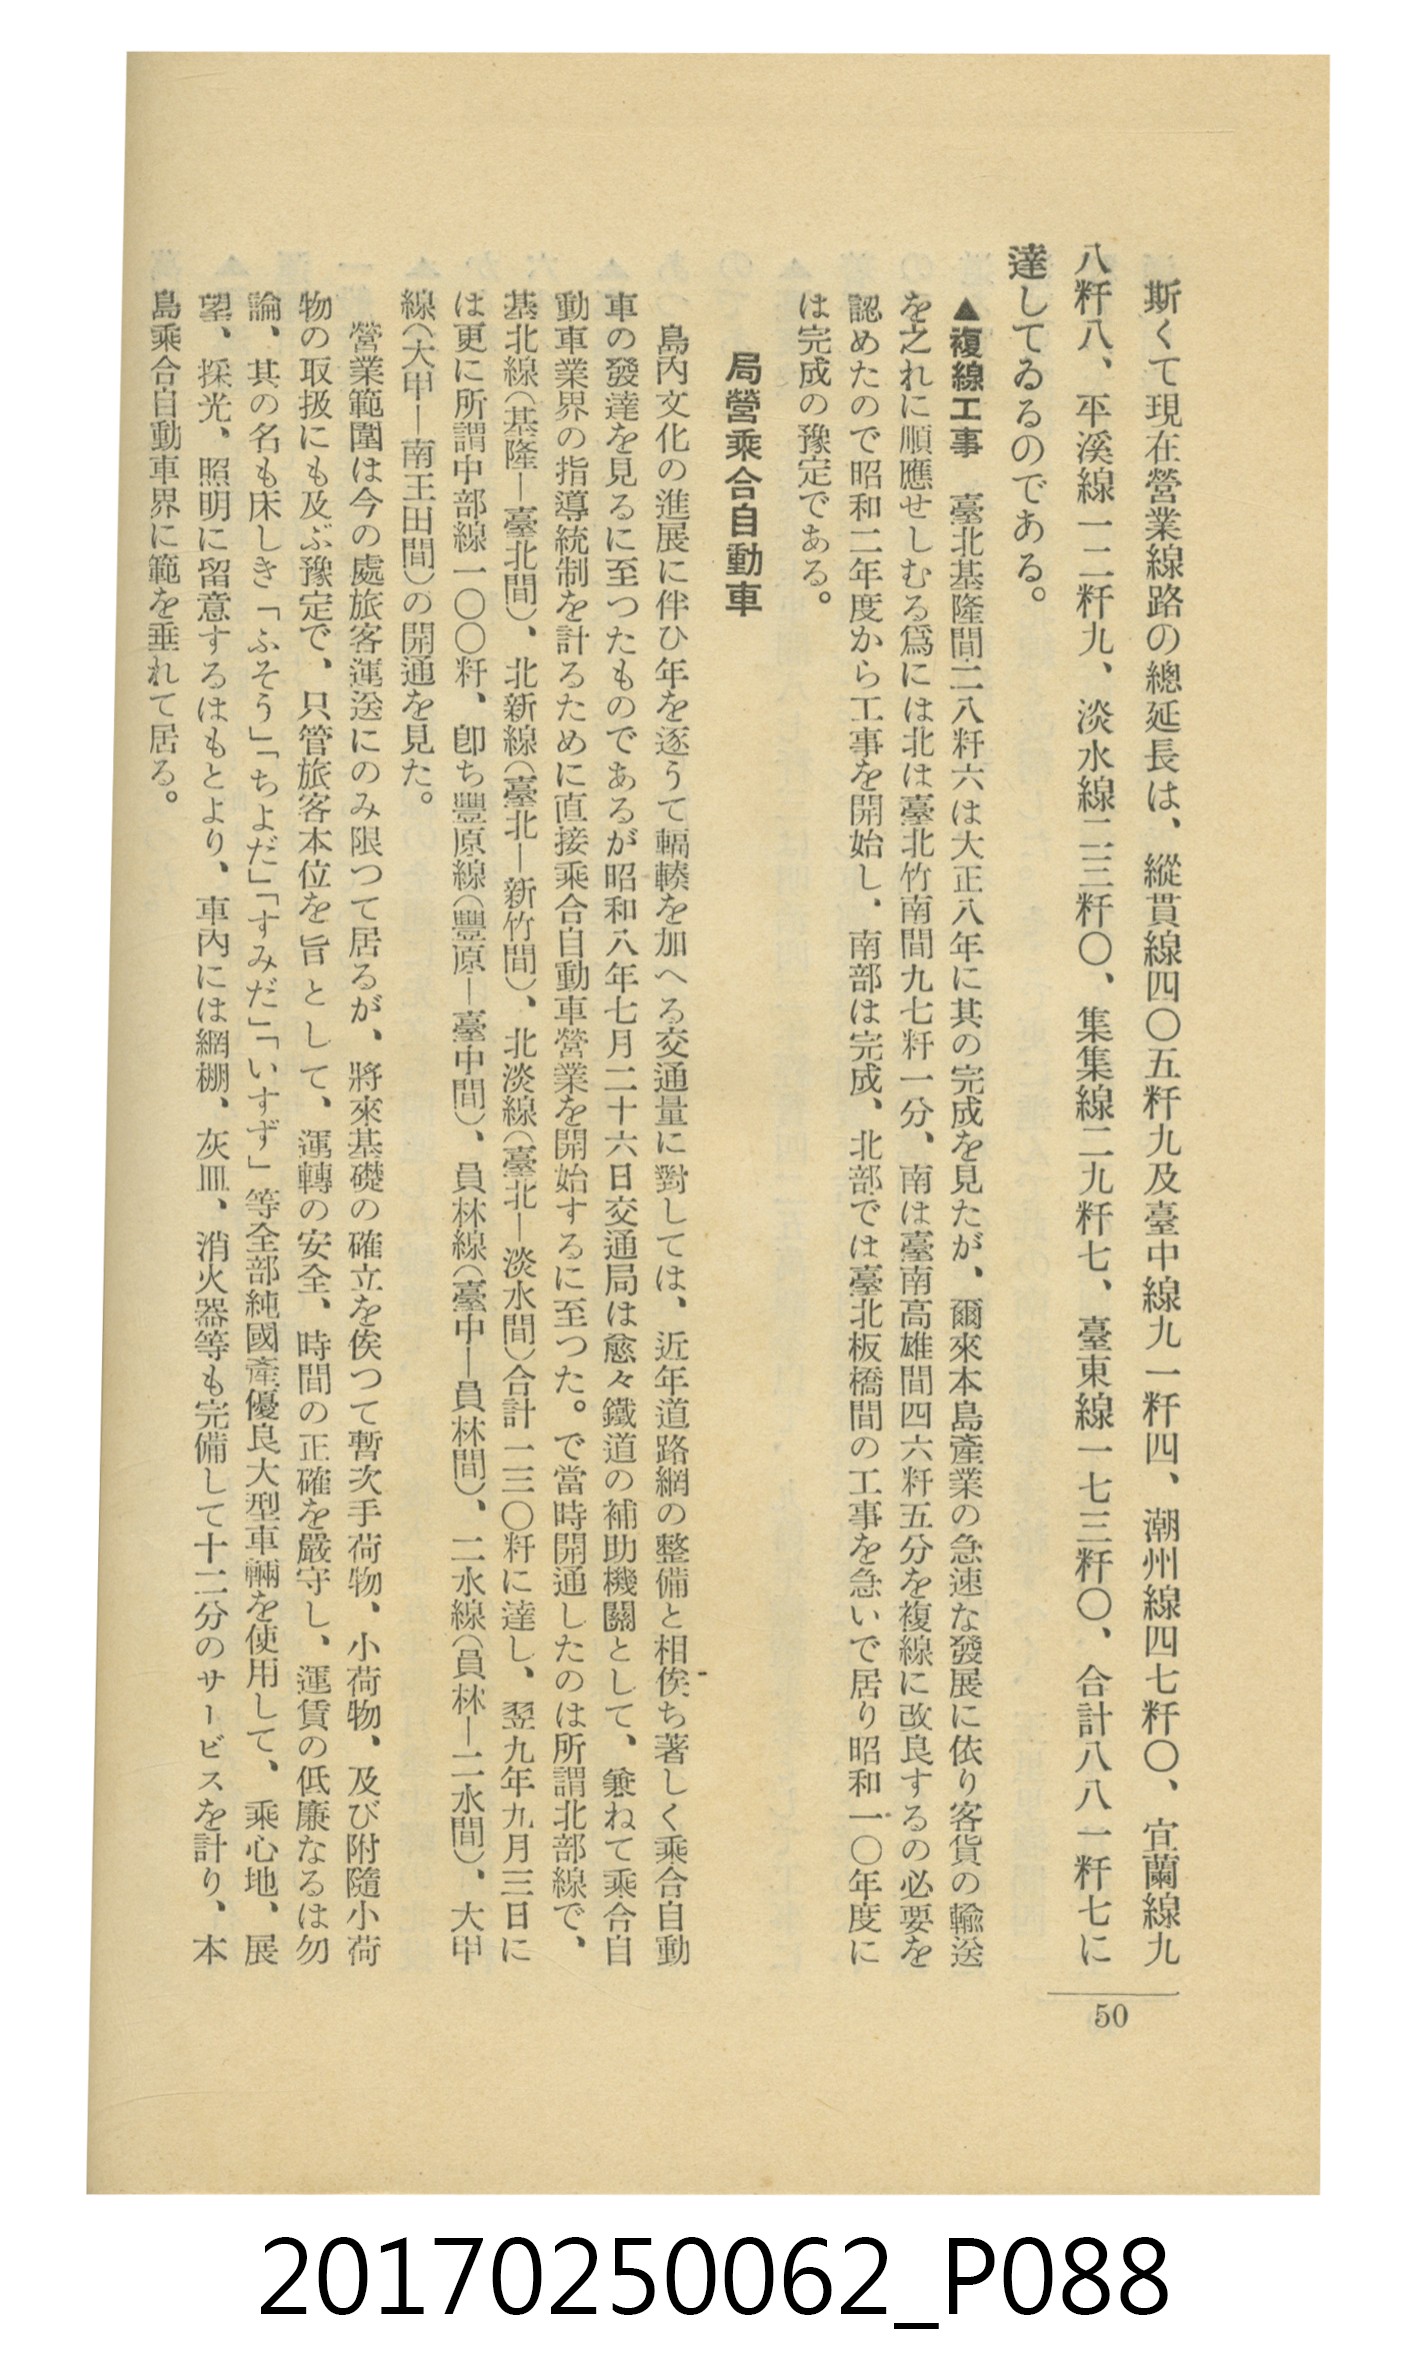 斯くて現在營業線路の總延長は、縱貫線四〇五粁九及臺中線九一粁四、潮州線四七粁〇、宜蘭線九
八粁八、平溪線一二粁九、淡水線二三粁〇、集集線二九粁七、臺東線一七三粁〇、合計八八一粁七に
達してゐるのである。
▲複線工事　臺北基隆間二八粁六は大正八年に其の完成を見たが、爾來本島產業の急速な發展に依り客貨の輸送
を之れに順應せしむる爲には北は臺北竹南間九七粁一分、南は臺南高雄間四六粁五分を複線に改良するの必要を
認めたので昭和二年度から工事を開始し、南部は完成、北部では臺北板橋間の工事を急いで居り昭和一〇年度に
は完成の豫定である。
局營乘合自動車
島內文化の進展に伴ひ年を逐うて輻輳を加へる交通量に對しては、近年道路網の整備と相俟ち著しく乘合自動
車の發達を見るに至つたものであるが昭和八年七月二十六日交通局は愈々鐵道の補助機關として、兼ねて乘合自
動車業界の指導統制を計るために直接乘合自動車營業を開始するに至つた。で當時開通したのは所謂北部線で、
基北線（基隆―臺北間）、北新線（臺北―新竹間）、北淡線（臺北―淡水間）合計一三〇粁に達し、翌九年九月三日に
は更に所謂中部線一〇〇粁、卽ち豐原線（豐原―臺中間）、員林線（臺中―員林間）、二水線（員林―二水間）、大甲
線（大甲―南王田間）の開通を見た。
營業範圍は今の處旅客運送にのみ限つて居るが、將來基礎の確立を俟つて暫次手荷物、小荷物、及び附隨小荷
物の取扱にも及ぶ豫定で、只管旅客本位を旨として、運轉の安全、時間の正確を嚴守し、運賃の低廉なるは勿
論、其の名も床しき「ふそう」「ちよだ」「すみだ」「いすず」等全部純國產優良大型車輛を使用して、乘心地、展
望、採光、照明に留意するはもとより、車內には網棚、灰皿、消火器等も完備して十二分のサービスを計り、本
島乘合自動車界に範を垂れて居る。
50
20170250062_P088